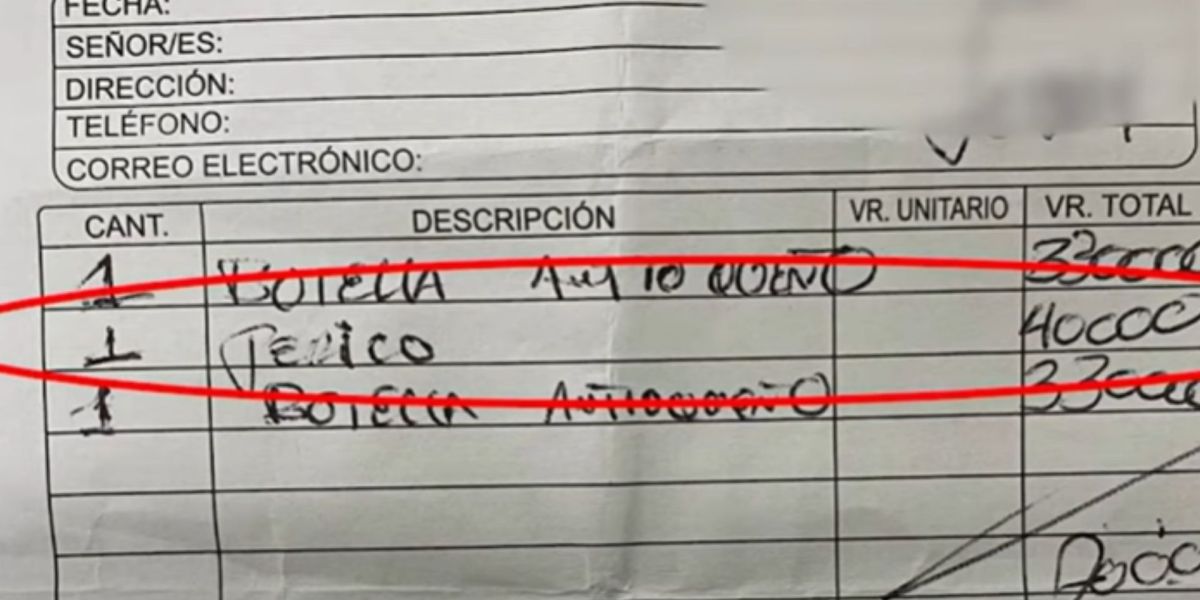 FECHA:
SEÑOR/ES:
DIRECCIÓN:
TELÉFONO:
CORREO ELECTRÓNICO:
CANT. DESCRIPCIÓN VR. UNITARIO VR. TOTAL
1 BOTELLA ANTIOQUEÑO 330000
1 PERICO 40000
1 BOTELLA ANTIOQUEÑO 330000